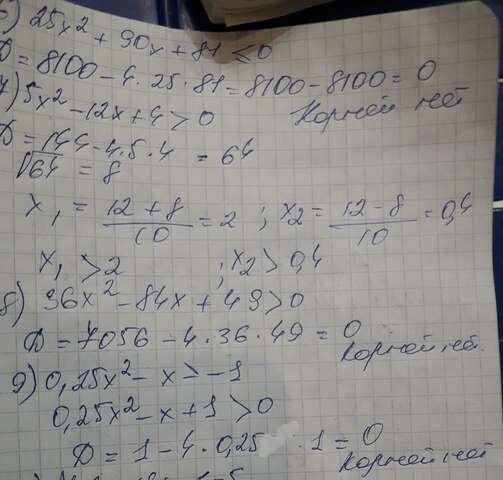 6) 25x² + 90x + 81 ≤ 0
D = 8100 - 4 · 25 · 81 = 8100 - 8100 = 0
Корней нет
7) 5x² - 12x + 4 > 0
D = 144 - 4 · 5 · 4 = 64
√64 = 8
x₁ = (12 + 8)/10 = 2 ; x₂ = (12 - 8)/10 = 0,4
x₁ > 2 ; x₂ > 0,4
8) 36x² - 84x + 49 > 0
D = 7056 - 4 · 36 · 49 = 0
Корней нет.
9) 0,25x² - x > -1
0,25x² - x + 1 > 0
D = 1 - 4 · 0,25 · 1 = 0
Корней нет